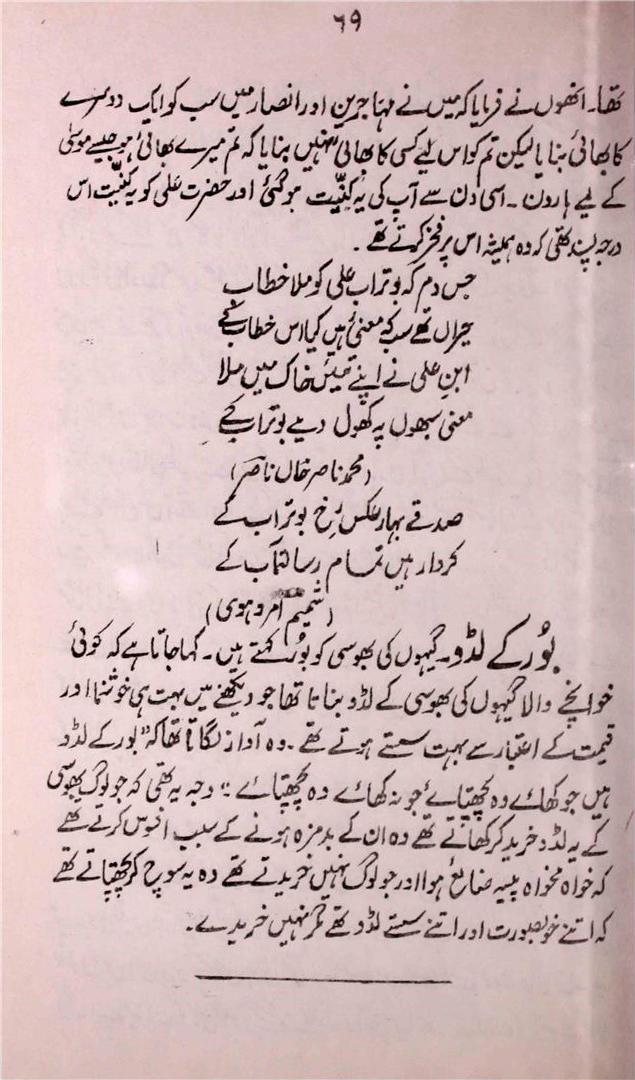 ۶۹
تھا۔ انھوں نے فرمایا کہ میں نے مہاجرین اور انصار میں سب کو ایک دوسرے
کا بھائی بنایا لیکن تم کو اس لیے کسی کا بھائی نہیں بنایا کہ تم میرے بھائی ہو جیسے موسیٰ
کے لیے ہارون۔ اسی دن سے آپ کی یہ کنیّت ہوگئی اور حضرت علی کو یہ کنیّت اس
درجہ پسند تھی کہ وہ ہمیشہ اس پر فخر کرتے تھے۔
جس دم کہ بوتراب علی کو ملا خطاب
حیراں تھے سب کہ معنیٰ ہیں کیا اس خطاب کے
ابنِ علی نے اپنے تئیں خاک میں ملا
معنی سبھوں پہ کھول دیے بوتراب کے
(محمد ناصر خاں ناصر)
صدقے بہار عکسِ رخِ بوتراب کے
کردار ہیں تمام رسالتمآب کے
(شمیم امروہوی)
بُور کے لڈو۔ گیہوں کی بھوسی کو بُور کہتے ہیں۔ کہا جاتا ہے کہ کوئی
خوانچے والا گیہوں کی بھوسی کے لڈو بناتا تھا جو دیکھنے میں بہت ہی خوشنما اور
قیمت کے اعتبار سے بہت سستے ہوتے تھے۔ وہ آواز لگاتا تھا کہ "بور کے لڈو
ہیں جو کھائے وہ پچھتائے جو نہ کھائے وہ پچھتائے" وجہ یہ تھی کہ جو لوگ بھوسی
کے یہ لڈو خرید کر کھاتے تھے وہ ان کے بدمزہ ہونے کے سبب افسوس کرتے تھے
کہ خواہ مخواہ پیسہ ضائع ہوا اور جو لوگ نہیں خریدتے تھے وہ یہ سوچ کر پچھتاتے تھے
کہ اتنے خوبصورت اور اتنے سستے لڈو تھے مگر نہیں خریدے۔